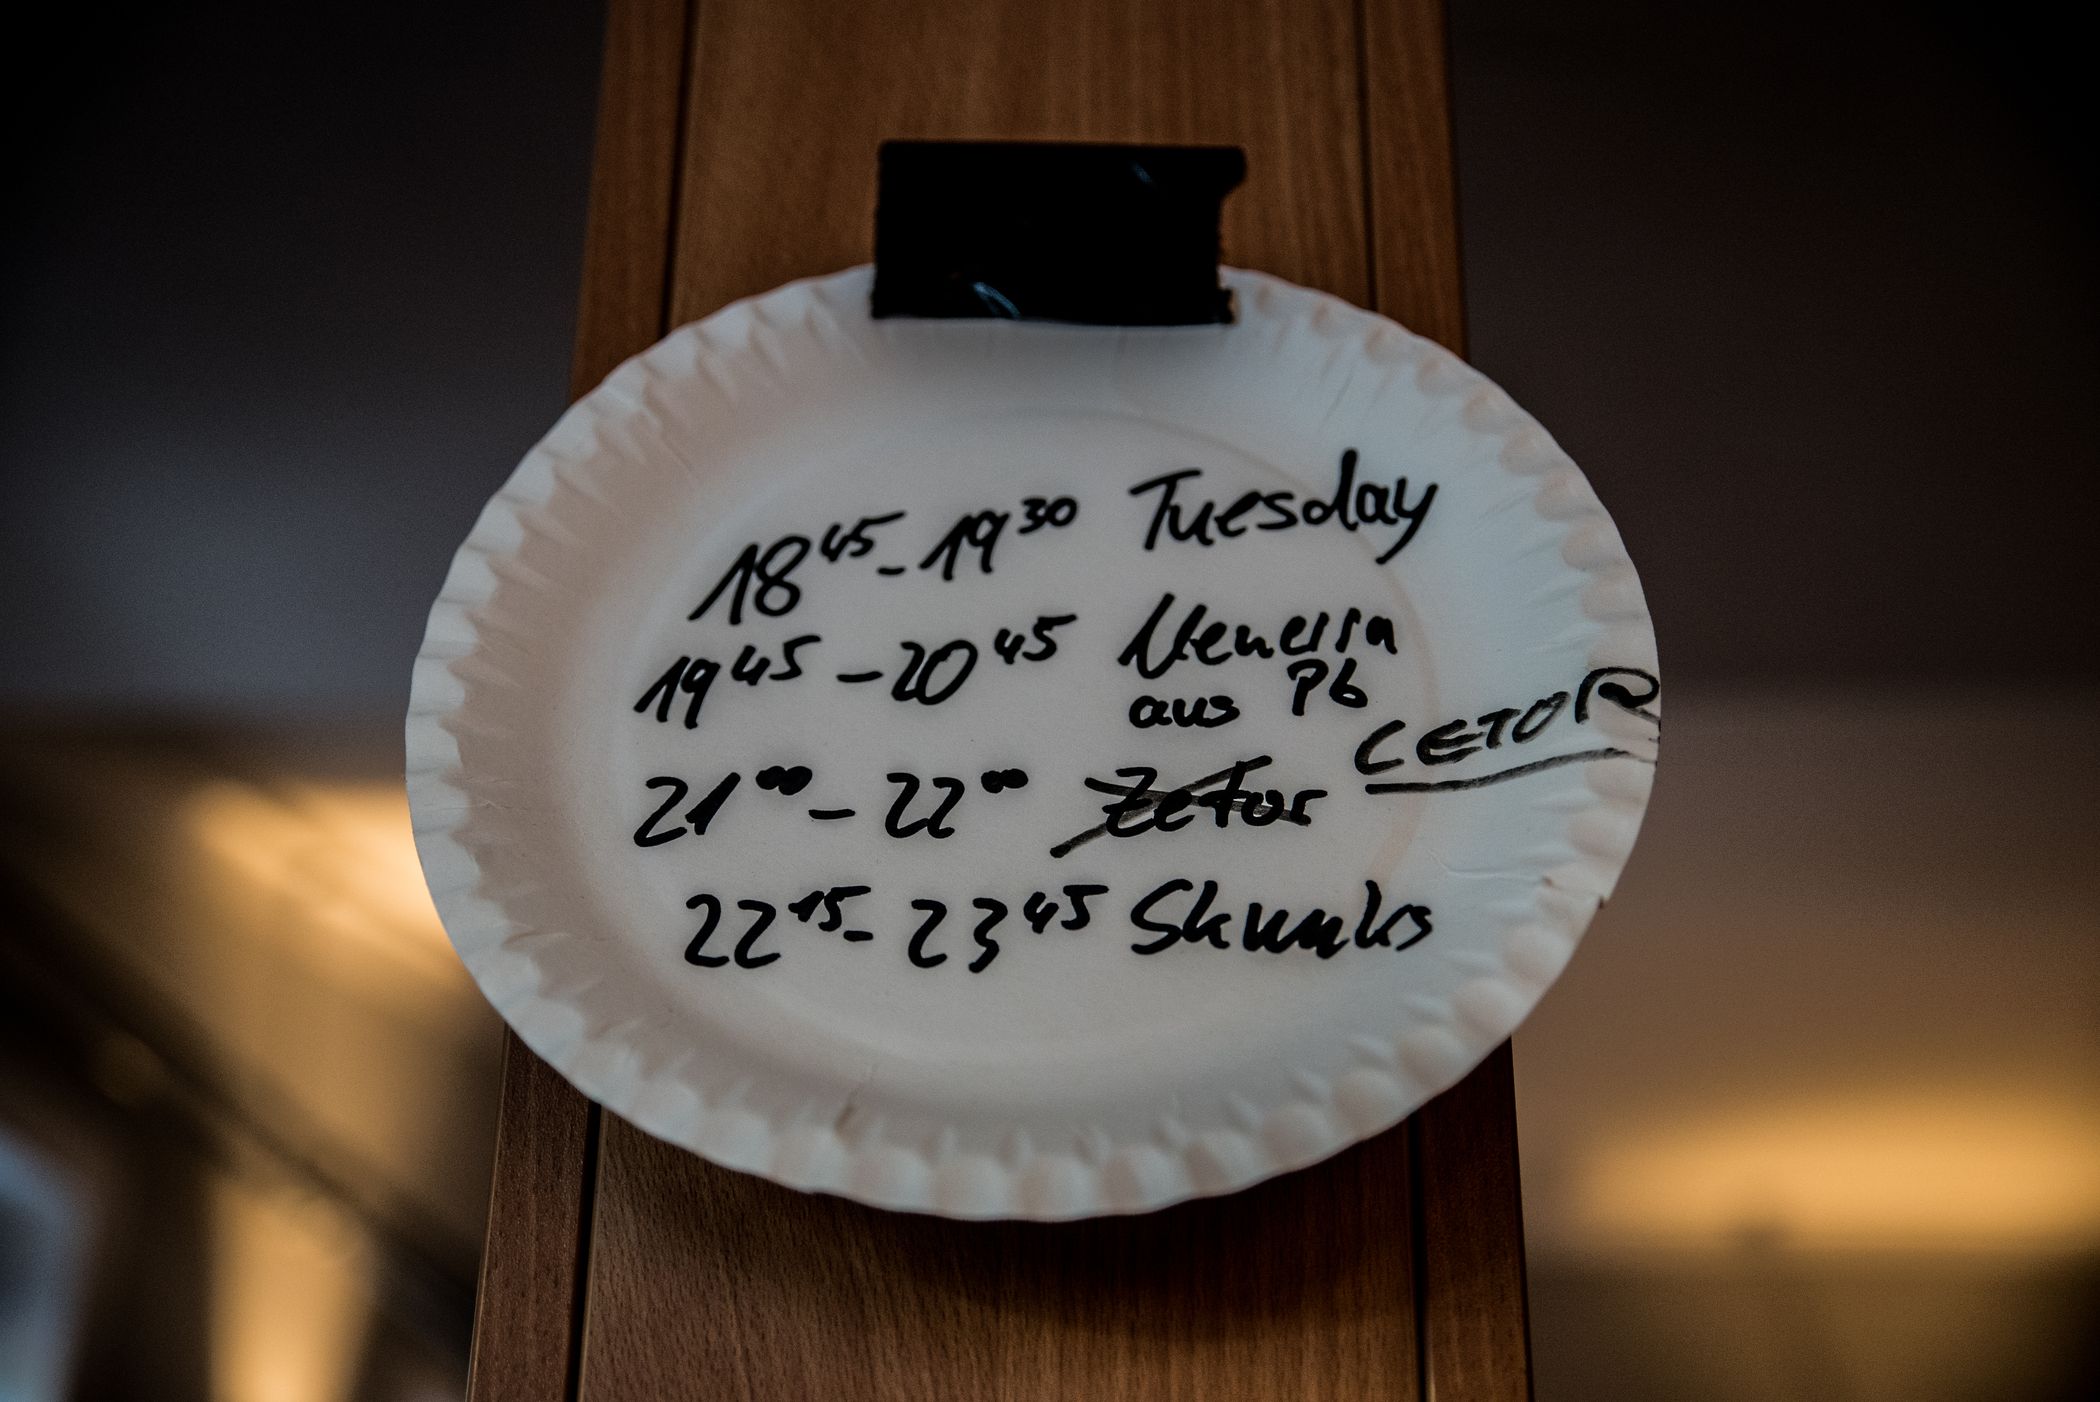 18 45 - 19 30 Tuesday
19 45 - 20 45
aus Pb
21 00 - 22 00 Zetor CETOR
22 15 - 23 45 Skunks